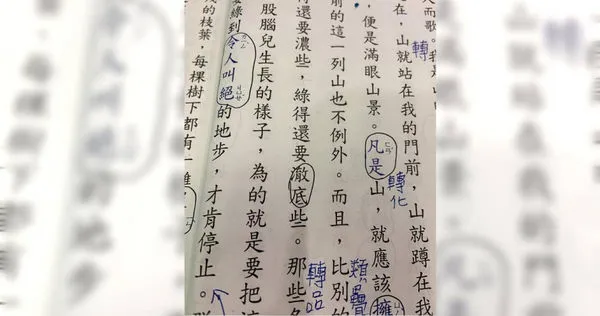 而歌。我是山
轉
在，山就站在我的門前，山就蹲在我
轉化
便是滿眼山景。凡是山，就應該擁
ㄈㄢˊ
前的這一列山也不例外。而且，比別的
類疊
還要濃些，綠得還要澈底些。那些
轉品
股腦兒生長的樣子，為的就是要把
綠到令人叫絕的地步，才肯停止。
ㄐㄩㄝˊ
的枝葉，每棵樹下都有一